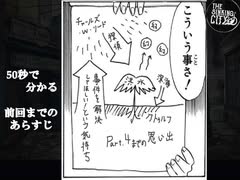 こういう事さ!
チャールズ・
W・リード
探偵
洪水
クトゥルフ
事件を解決
してほしい!という気持ち
Part.4までの思い出
50秒で
分かる
前回までの
あらすじ
THE
SINKING
CITY